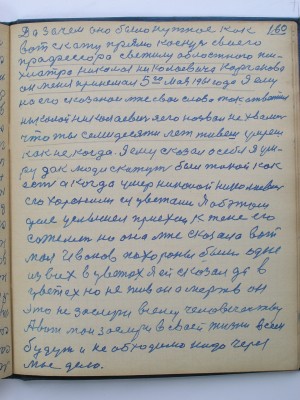 Да зачем оно было нужное как 169
вот скажу прямо коснусь своего
профессора светилу областного пси-
хиатра николай николаевич Корганова
он меня принимал 5го мая 1961 года Я ему
на его сказал мне свои слово так ответил
николай николаевич его назвал не хвали
что ты семидесяти лет живеш умреш
как не когда. Я ему сказал о себе Я ум-
ру дак люди скажут был такой как
есть а когда умер николай николаевич
схоронили с цветами Я об этом
деле услышел приехал к жене его
сожелел но она мне сказала вот
мол Иванов похороны были одне
из всех в цветах. Я ей сказал да в
цветех но не жив он а мертв он
это не заслуги всему человечеству
А вот мои заслуги в своей жизни всем
будут и необходимо надо через
мое дело.